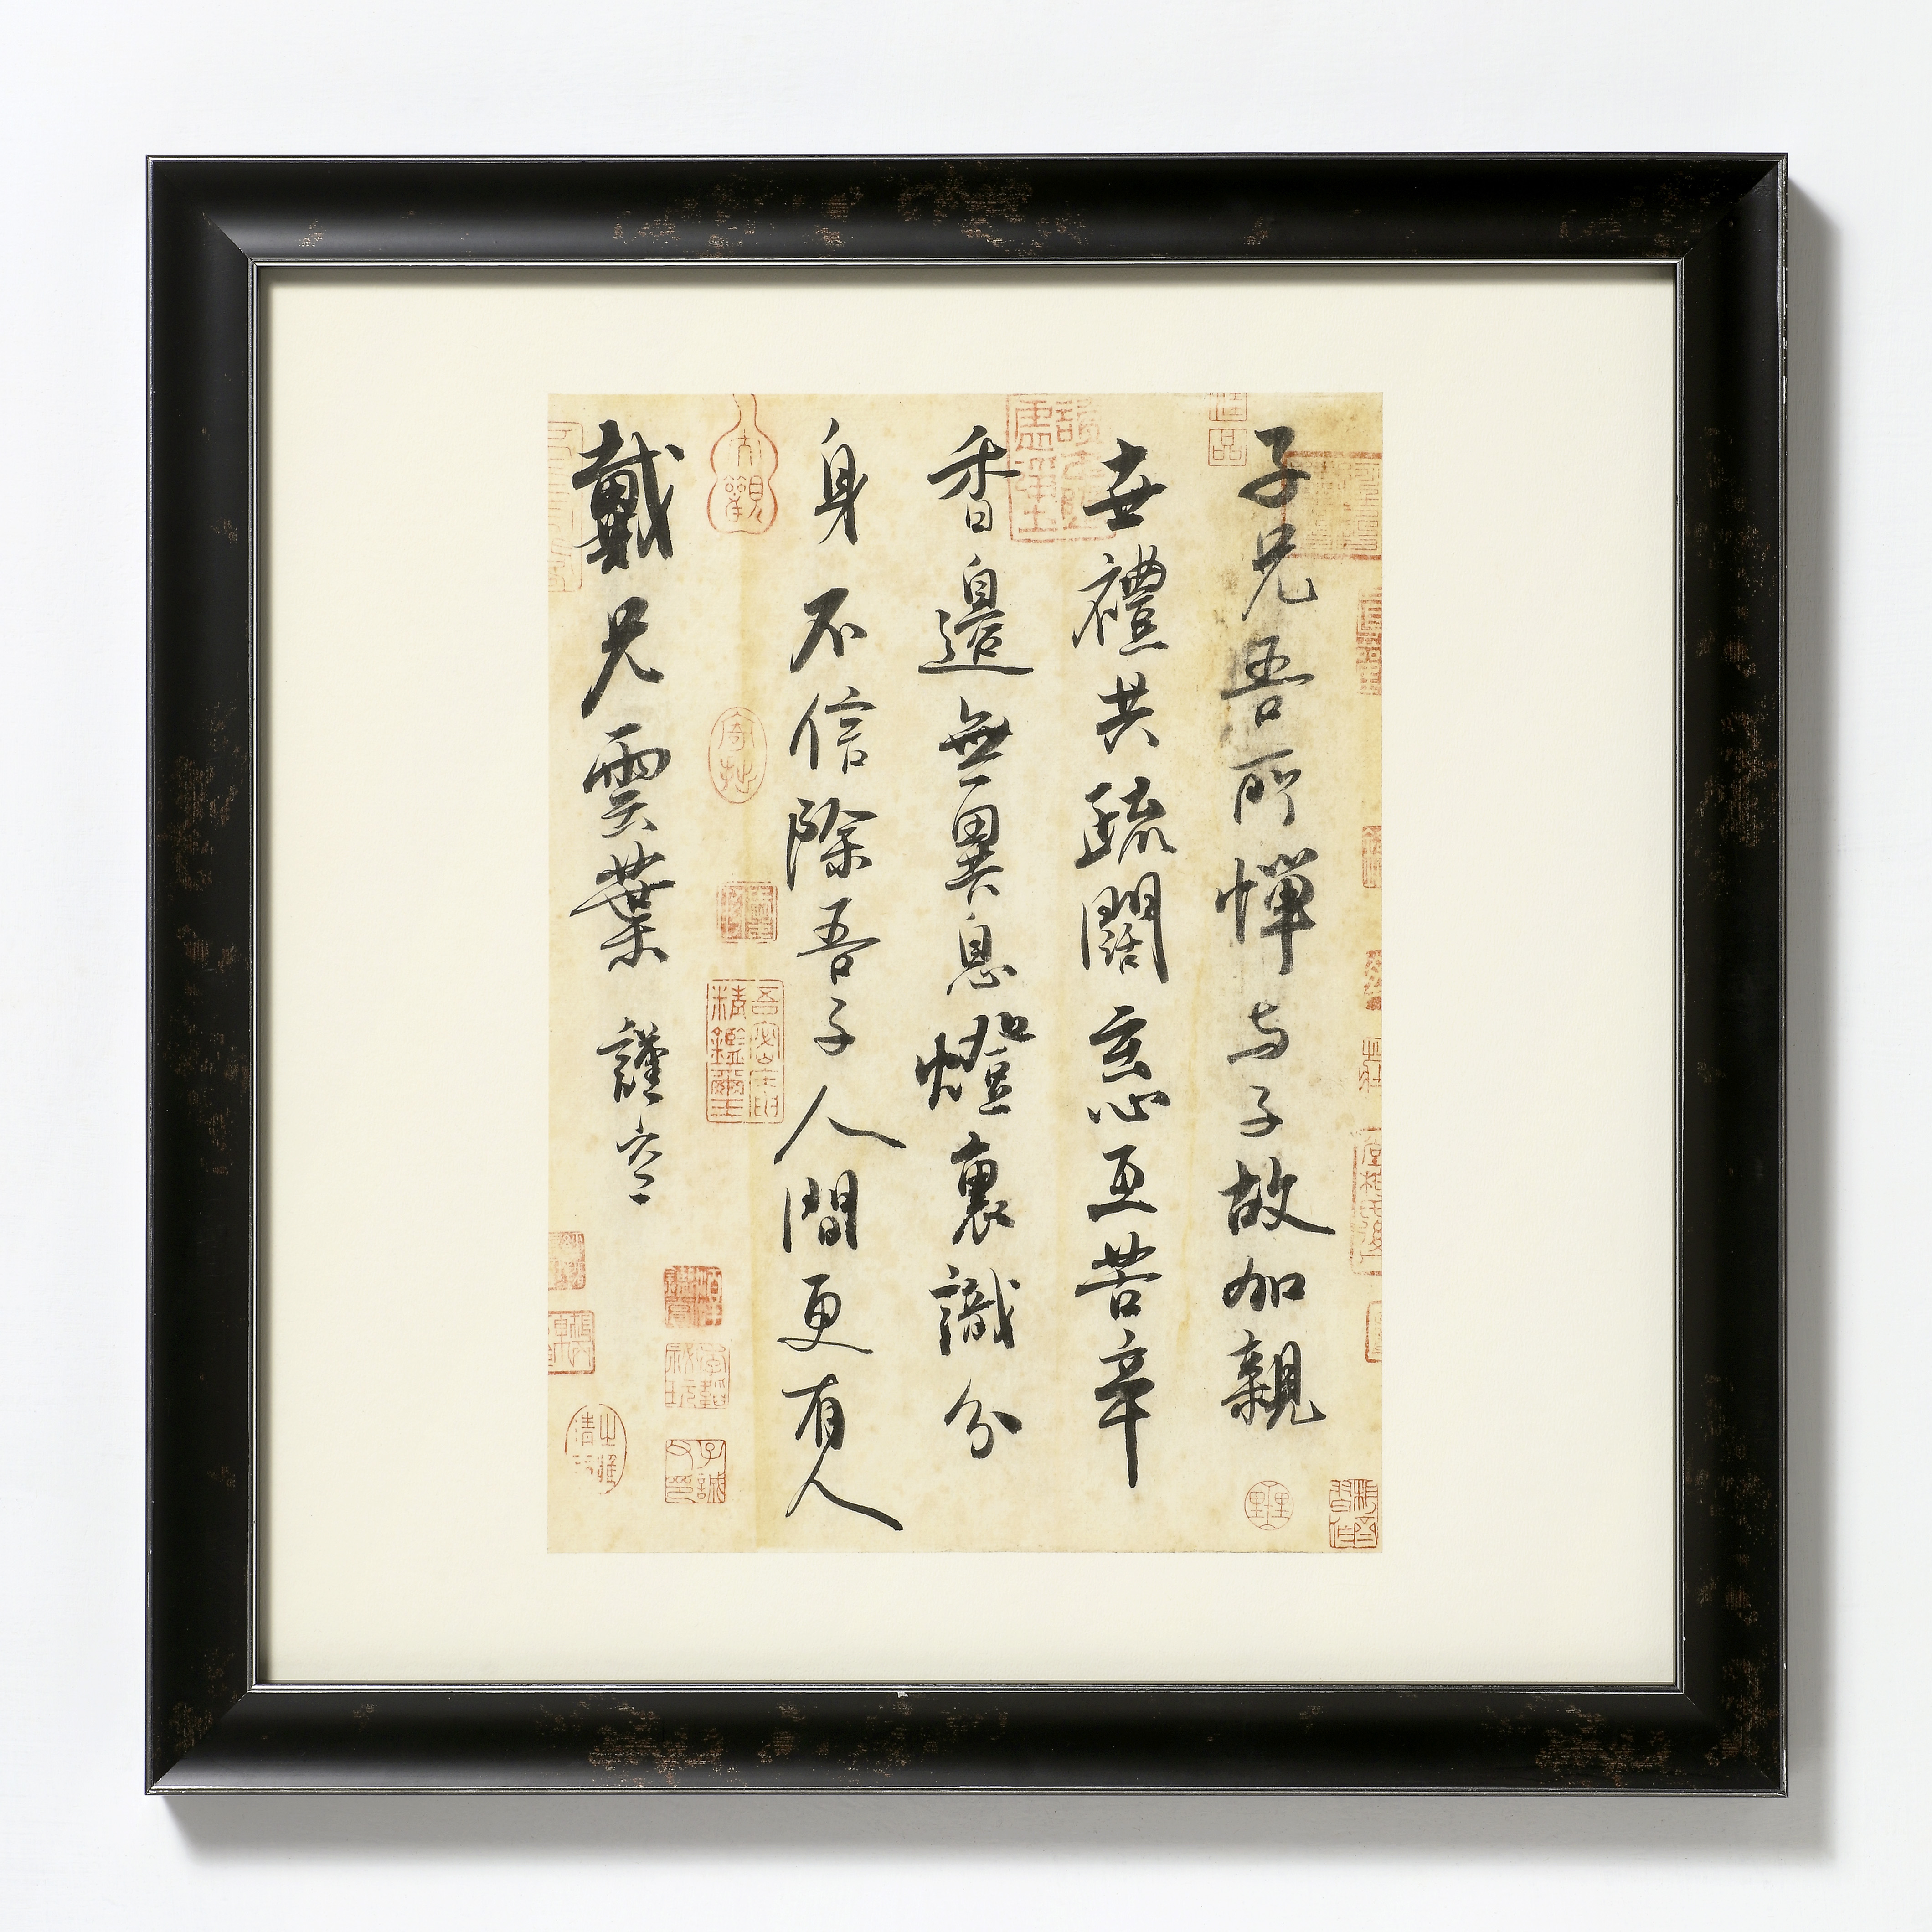 子兄吾所憚与子故加親
世禮共疏闊玄心互苦辛
香邊無異息燈裏識分
身不信除吾子人間更有人
戴兄雲葉 謹空